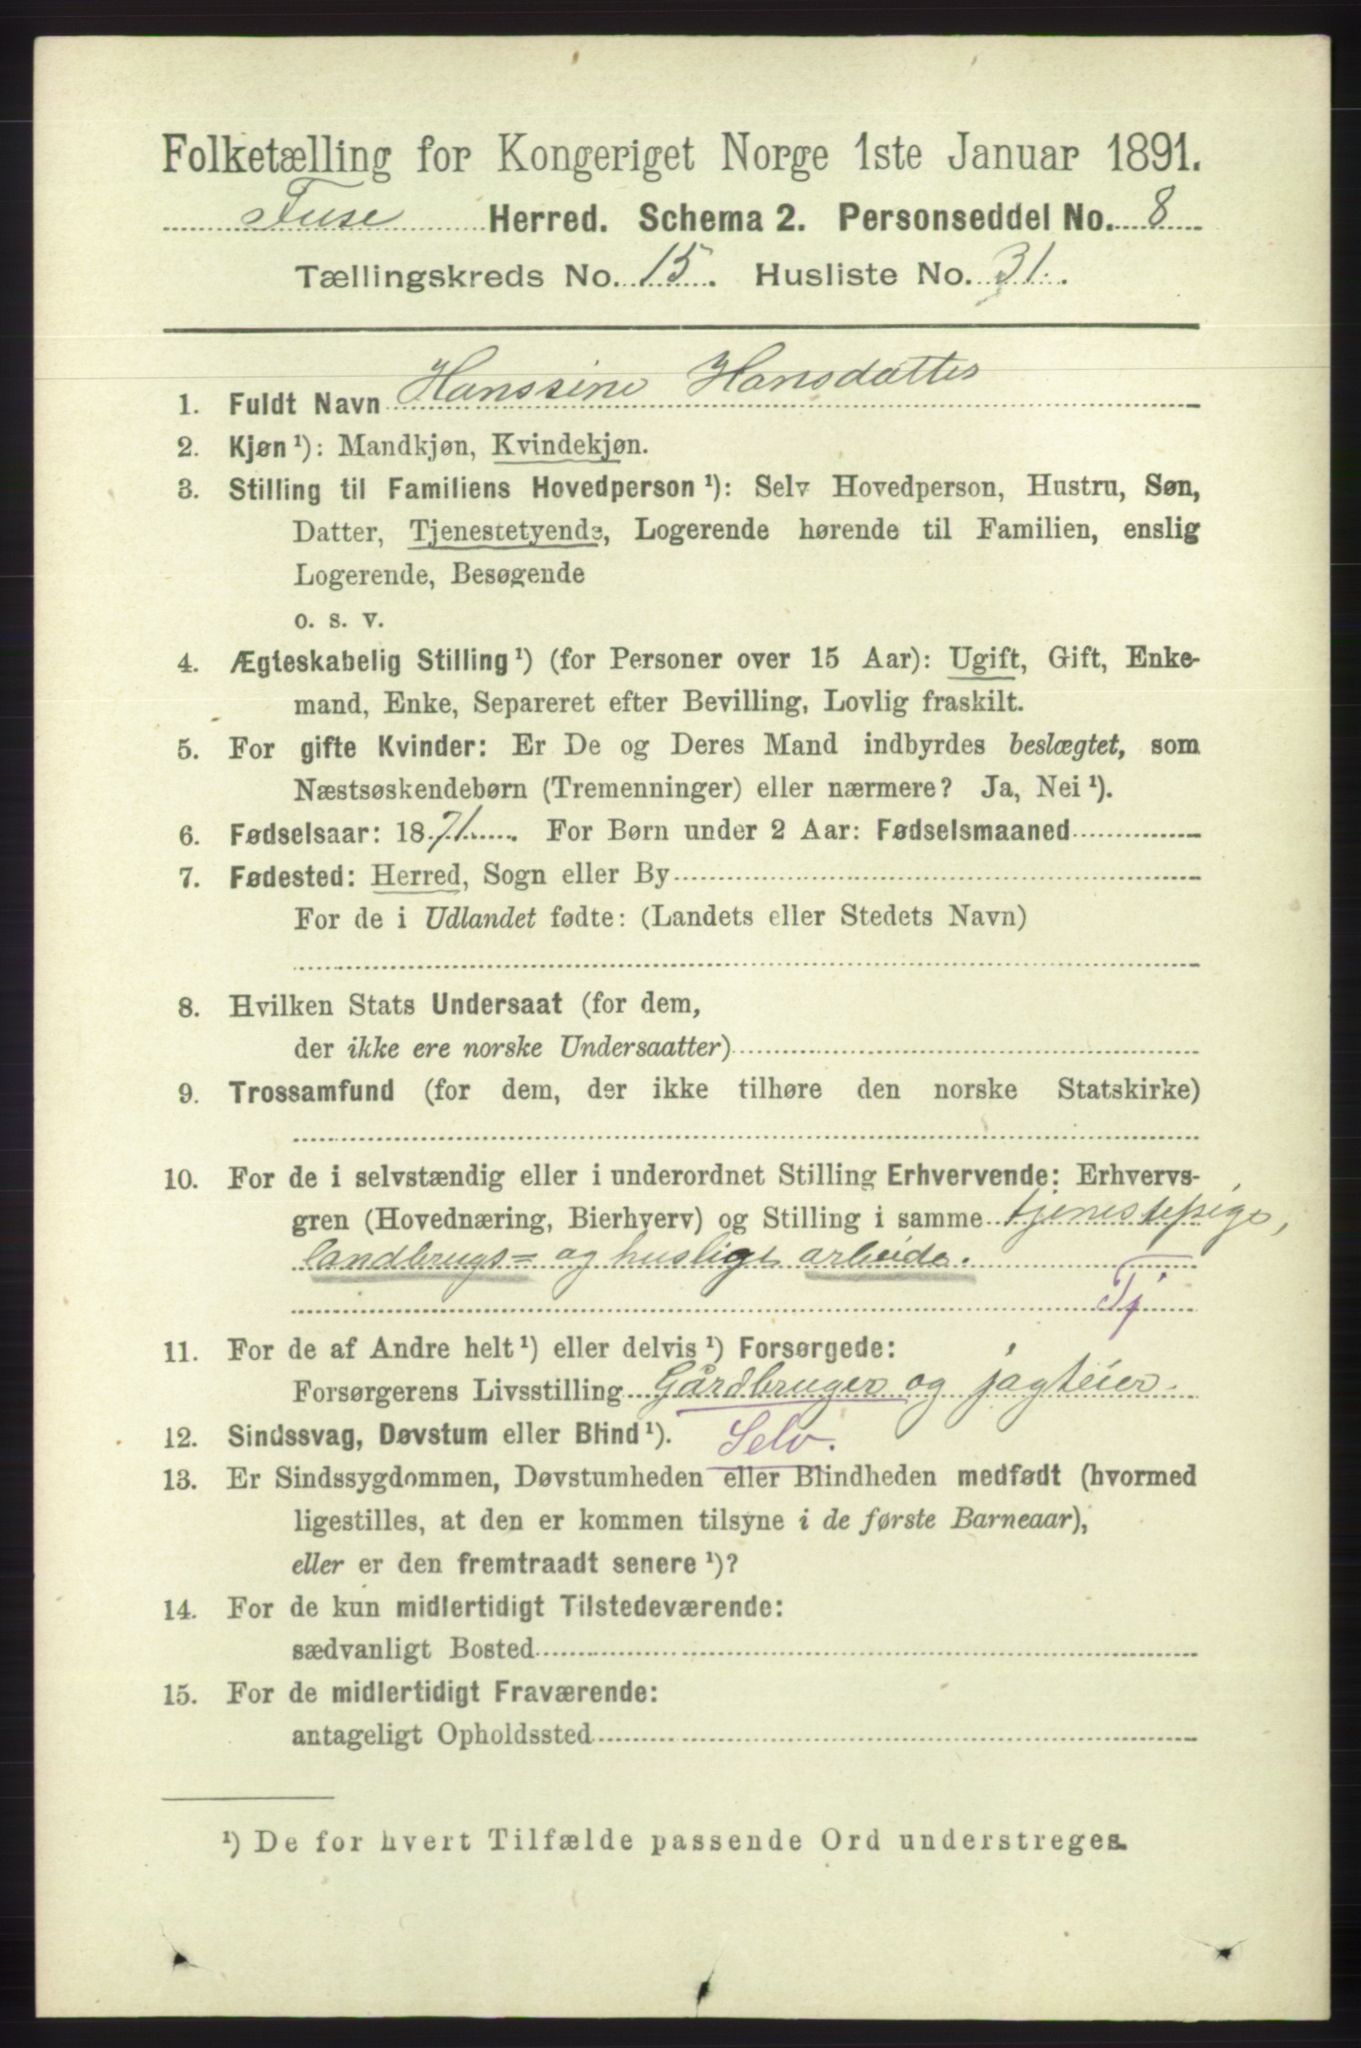 Folketælling for Kongeriget Norge 1ste Januar 1891.
Fuse Herred. Schema 2. Personseddel No. 8
Tællingskreds No. 15. Husliste No. 31.
1. Fuldt Navn Hanssine Hansdatter
2. Kjøn ¹): Mandkjøn, Kvindekjøn.
3. Stilling til Familiens Hovedperson ¹): Selv Hovedperson, Hustru, Søn,
Datter, Tjenestetyende, Logerende hørende til Familien, enslig
Logerende, Besøgende
o. s. v.
4. Ægteskabelig Stilling ¹) (for Personer over 15 Aar): Ugift, Gift, Enke-
mand, Enke, Separeret efter Bevilling, Lovlig fraskilt.
5. For gifte Kvinder: Er De og Deres Mand indbyrdes beslægtet, som
Næstsøskendebørn (Tremenninger) eller nærmere? Ja, Nei ¹).
6. Fødselsaar: 1871. For Børn under 2 Aar: Fødselsmaaned
7. Fødested: Herred, Sogn eller By
For de i Udlandet fødte: (Landets eller Stedets Navn)
8. Hvilken Stats Undersaat (for dem,
der ikke ere norske Undersaatter)
9. Trossamfund (for dem, der ikke tilhøre den norske Statskirke)
10. For de i selvstændig eller i underordnet Stilling Erhvervende: Erhvervs-
gren (Hovednæring, Bierhverv) og Stilling i samme tjenestepige,
landbrugs= og huslige arbeide.
Tj
11. For de af Andre helt ¹) eller delvis ¹) Forsørgede:
Forsørgerens Livsstilling Gårdbruger og jagteier.
12. Sindssvag, Døvstum eller Blind ¹). Selv.
13. Er Sindssygdommen, Døvstumheden eller Blindheden medfødt (hvormed
ligestilles, at den er kommen tilsyne i de første Barneaar),
eller er den fremtraadt senere ¹)?
14. For de kun midlertidigt Tilstedeværende:
sædvanligt Bosted
15. For de midlertidigt Fraværende:
antageligt Opholdssted
¹) De for hvert Tilfælde passende Ord understreges.